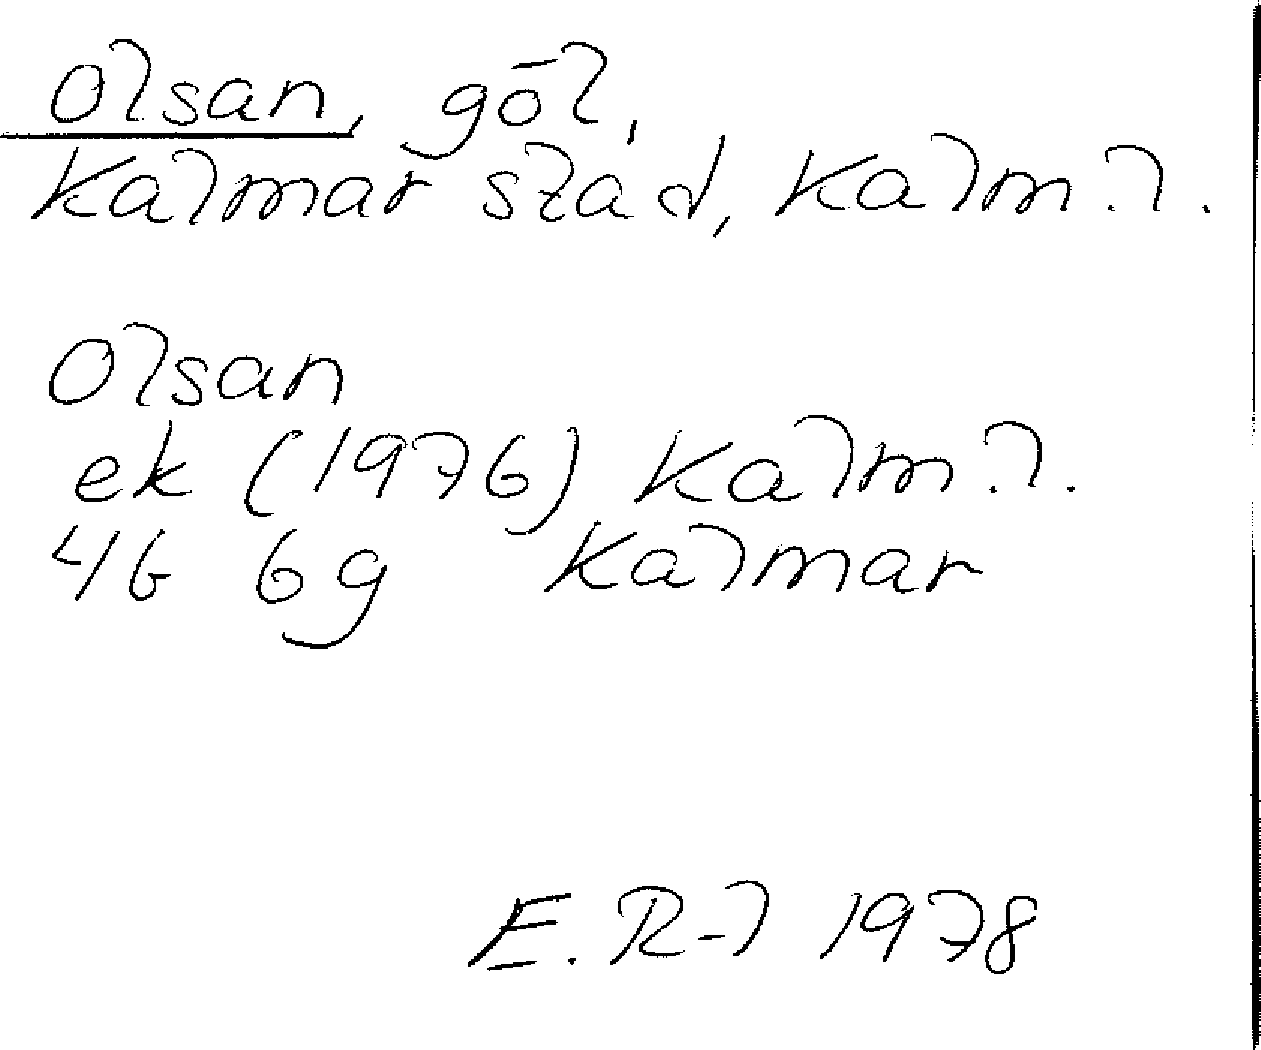 Olsan, göl,
Kalmar stad, Kalm.l.
Olsan
ek (1976) Kalm.l.
4G 6g Kalmar
E.R-l 1978